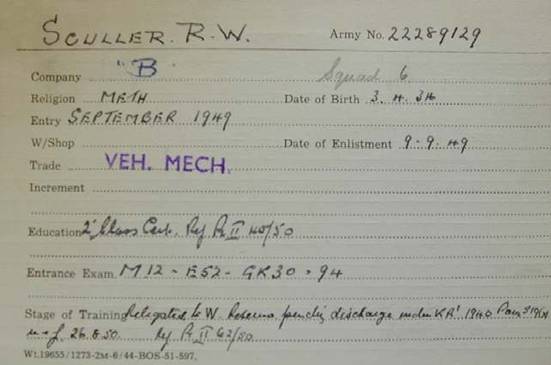 SCULLER. R.W. Army No. 22289129
Company "B" Squad 6
Religion METH Date of Birth 3. 4. 34
Entry SEPTEMBER 1949
W/Shop Date of Enlistment 9 · 9 · 49
Trade VEH. MECH.
Increment
Education 2' Class Cert. Pt II 40/50
Entrance Exam. M12 - E52 - GK30 - 94
Stage of Training Relegated to W. pending discharge under KR' 1940 Para
w.e.f. 26.8.50. Pt II 62/50
Wt.19655/1273-2M-6/44-BOS-51-597.